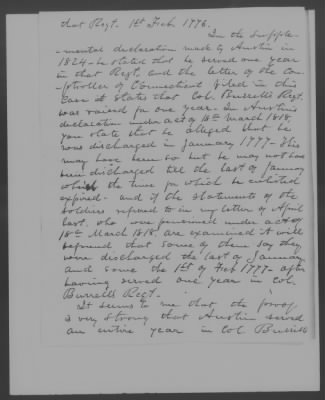 that Regt. 1st Feb 1776.
In the supple-
-mental declaration made by Austin in
1824 he stated that he served one year
in that Regt, and the letter of the Com-
ptroller of Connecticut filed in this
case it states that Col. Burrell's Regt.
was raised for one year. In Austin's
declaration under act of 18th March 1818
you state that he alleged that he
was discharged in January 1777 - This
may have been so but he may not have
been discharged till the last of January
when the time for which he enlisted
expired - and if the statements of the
soldiers referred to in my letter of April
last, who were pensioned under act of
18th March 1818, are examined it will
be found that some of them say they
were discharged the last of January
and some the 1st of Feb 1777 - after
having served one year in Col.
Burrell's Regt.
It seems to me that the proof
is very strong that Austin served
an entire year in Col. Burrell's